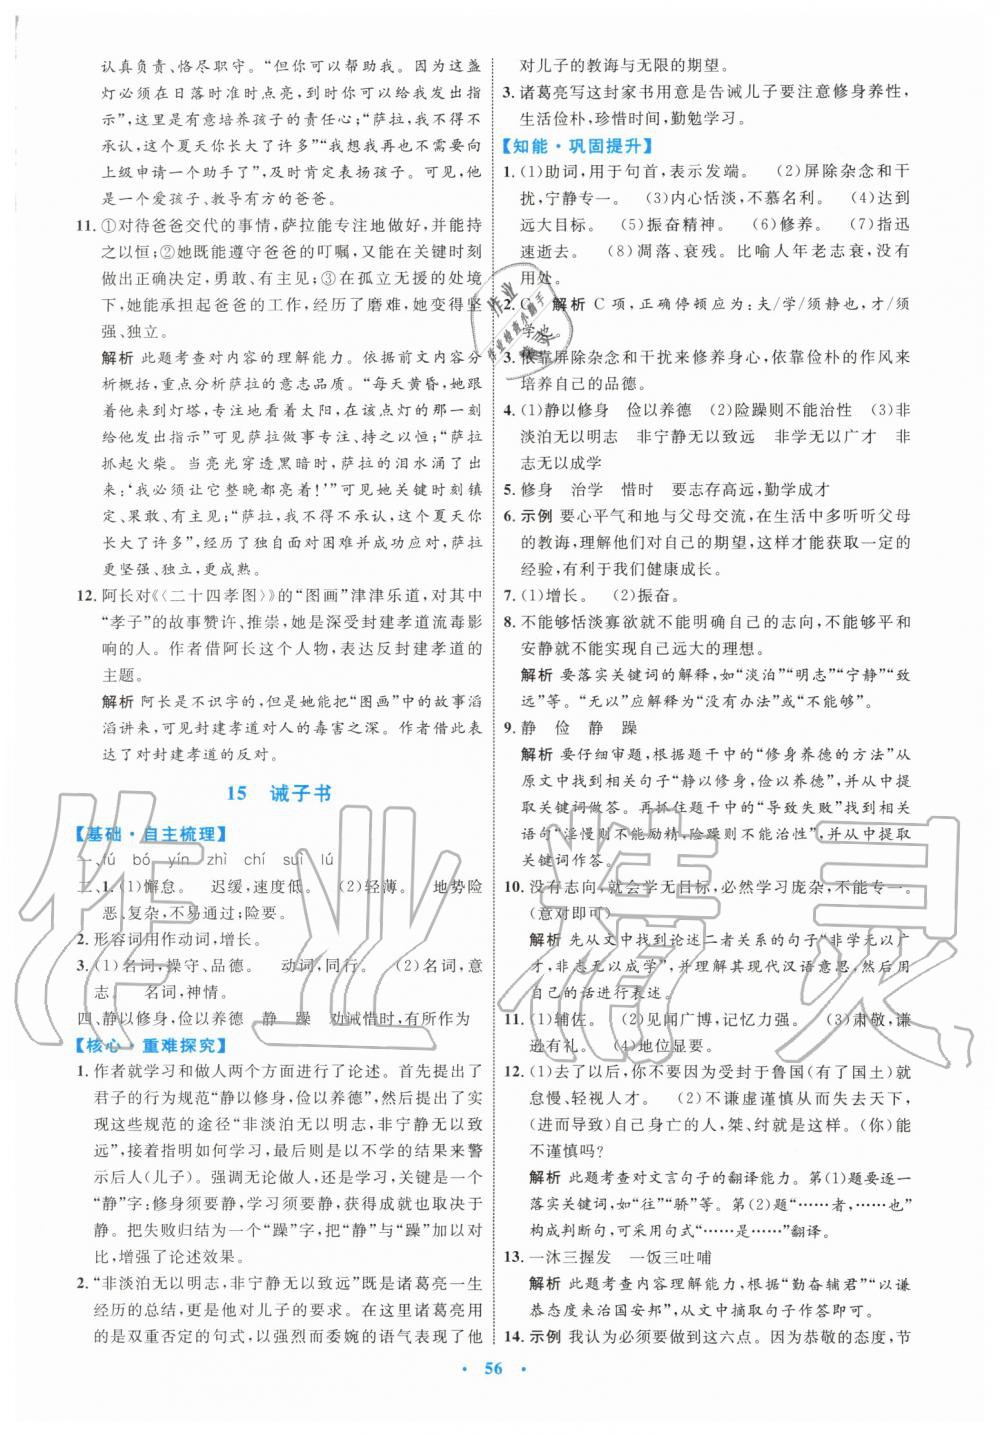 认真负责、恪尽职守。“但你可以帮助我。因为这盏
灯必须在日落时准时点亮,你到时候向我发出指
示”中有意培养孩子的责任心;“萨拉,我不得不承
认,这个夏天你长大了许多”“我想我再也不需要向
上级申请一个助手了”及时肯定表扬孩子。由此可见,他
是一个爱孩子、教导有方的爸爸。
11. ①对待爸爸交代的事情,萨拉能专注地做好,并能持
之以恒;②她既能遵守爸爸的叮嘱,又能在关键时刻
做出正确决定,勇敢、有主见;③在孤立无援的处境
下,她能承担起爸爸的工作,历经了磨难,她变得坚
强、独立。
解析 此题考查对内容的理解能力。依据前文内容分
析概括,重点分析萨拉的意志品质。“每天黄昏,她跟
着他来到灯塔,专注地看着太阳,在该点灯的那一刻
给他发出指示”可见萨拉做事专注、持之以恒;“萨拉
抓起火柴。当亮光穿透黑暗时,萨拉的泪水涌了上
来:‘我必须让它整晚都亮着!’”可见她关键时刻镇
定、果敢、有主见;“萨拉,我不得不承认,这个夏天你
长大了许多”,经历了独自面对困难并成功应对,萨拉
更坚强、独立、更成熟。
12. 阿长对《〈二十四孝图〉》的“图画”津津乐道,对其中
“孝子”的故事赞许、推崇,她是深受封建孝道流毒影
响的人。作者借阿长这个人物,表达反封建孝道的
主题。
解析 阿长是不识字的,但她能把“图画”中的故事滔
滔讲来,可见封建孝道对人的毒害之深。作者借此表
达了对封建孝道的反对。
15 诫子书
【基础·自主梳理】
一、fú bó yín zhì chí suì lú
二、1. (1)懈怠。 迟缓,速度低。 (2)轻薄。 地势险
恶、复杂,不易通过;险要。
2. 形容词用作动词,增长。
3. (1)名词,操守、品德。 动词,同行。 (2)名词,意
志。 名词,神情。
四、静以修身,俭以养德 静 躁 劝诫惜时,有所作为
【核心·重难探究】
1. 作者就学习和做人两个方面进行了论述。首先提出了
君子的行为规范“静以修身,俭以养德”,然后提出了
实现这些规范的途径“非淡泊无以明志,非宁静无以致
远”,接着指明如何学习,最后则是以不学的结果来警
示后人(儿子)。强调无论做人,还是学习,关键是一个
“静”字:修身须要静,学习须要静,获得成就也取决于
静。把失败归结为一个“躁”字,把“静”与“躁”加以对比,
增强了论述效果。
2. “非淡泊无以明志,非宁静无以致远”既是诸葛亮一生
经历的总结,更是他对儿子的要求。在这里诸葛亮用
的是双重否定的句式,以强烈而委婉的语气表现了他
对儿子的教诲与无限的期望。
3. 诸葛亮写这封家书用意是告诫儿子要注意修身养性,
生活俭朴,珍惜时间,勤勉学习。
【知能·巩固提升】
1. (1)助词,用于句首,表示发端。 (2)屏除杂念和干
扰,宁静专一。 (3)内心恬淡,不慕名利。 (4)达到
远大目标。 (5)振奋精神。 (6)修养。 (7)指迅
速逝去。 (8)凋落、衰残。比喻人年老志衰,没有
用处。
2. C 解析 C项,正确停顿应为:夫/学/须静也,才/须
学也。
3. 依靠屏除杂念和干扰来修养身心,依靠俭朴的作风来
培养自己的品德。
4. (1)静以修身 俭以养德 (2)险躁则不能治性 (3)非
淡泊无以明志 非宁静无以致远 非学无以广才 非
志无以成学
5. 修身 治学 惜时 要志存高远,勤学成才
6. 示例 要心平气和地与父母交流,在生活中多听听父母
的教诲,理解他们对自己的期望,这样才能获取一定的
经验,有利于我们健康成长。
7. (1)增长。 (2)振奋。
8. 不能够恬淡寡欲就不能明确自己的志向,不能够平和
安静就不能实现自己远大的理想。
解析 要落实关键词的解释,如“淡泊”“明志”“宁静”“致
远”等。“无以”应解释为“没有办法”或“不能够”。
9. 静 俭 静 躁
解析 要仔细审题,根据题干中的“修身养德的方法”从
原文中找到相关句子“静以修身,俭以养德”,从中提
取关键词做答。再抓住题干中的“导致失败”找到相关
语句“淫慢则不能励精,险躁则不能治性”,从中提取
关键词作答。
10. 没有志向,就会学无目标,必然学习庞杂,不能专一。
(意对即可)
解析 先从文中找到论述二者关系的句子“非学无以广
才,非志无以成学”,并理解其现代汉语意思,然后用
自己的话进行表述。
11. (1)辅佐。 (2)见闻广博,记忆力强。 (3)肃敬,谦
逊有礼。 (4)地位显要。
12. (1)去了以后,你不要因为受封于鲁国(有了国土)就
怠慢、轻视人才。 (2)不谦虚谨慎从而失去天下,
(并且)导致自己身亡的人,桀、纣就是这样。(你)能
不谨慎吗?
解析 此题考查对文言句子的翻译能力。第(1)题要逐一
落实关键词,如“往”“骄”等。第(2)题“……者,……也”
构成判断句,可采用句式“……是……”翻译。
13. 一沐三握发 一饭三吐哺
解析 此题考查内容理解能力,根据“勤奋辅君”“以谦
恭态度来治国安邦”,从文中摘取句子作答即可。
14. 示例 我认为必须要做到这六点。因为恭敬的态度,节
· 56 ·